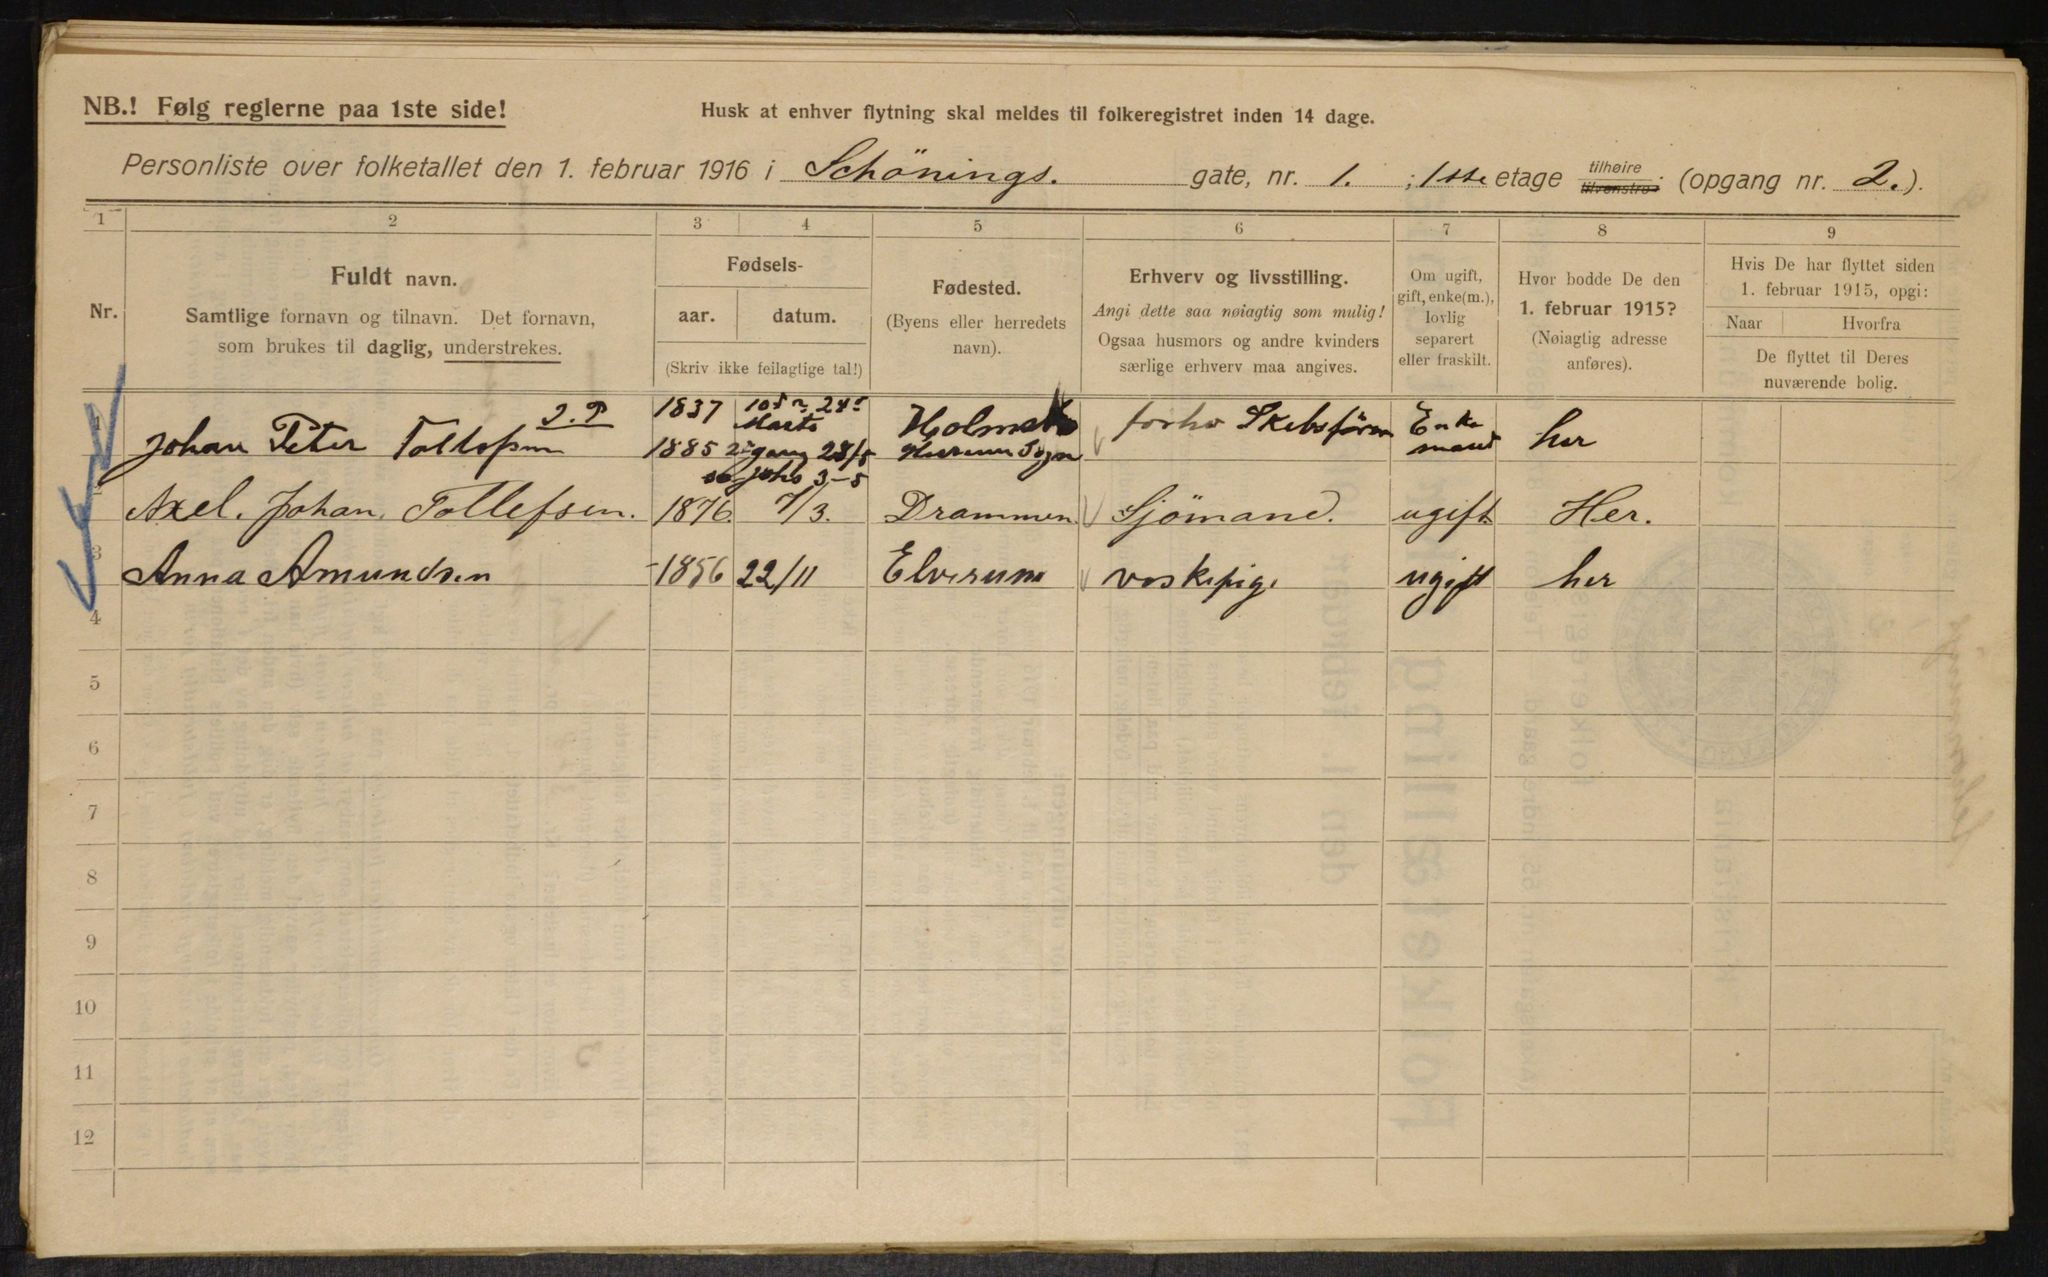 NB.! Følg reglerne paa 1ste side!
Husk at enhver flytning skal meldes til folkeregistret inden 14 dage.
Personliste over folketallet den 1. februar 1916 i Schönings. gate, nr. 1. ; 1ste etage tilhøire tilvenstre. (opgang nr. 2.).
1 2 3 4 5 6 7 8 9
Nr.
Fuldt navn.
Samtlige fornavn og tilnavn. Det fornavn,
som brukes til daglig, understrekes.
Fødsels-
aar. datum.
(Skriv ikke feilagtige tal!)
Fødested.
(Byens eller herredets
navn).
Erhverv og livsstilling.
Angi dette saa nøiagtig som mulig!
Ogsaa husmors og andre kvinders
særlige erhverv maa angives.
Om ugift,
gift, enke(m.),
lovlig
separert
eller fraskilt.
Hvor bodde De den
1. februar 1915?
(Nøiagtig adresse
anføres).
Hvis De har flyttet siden
1. februar 1915, opgi:
Naar Hvorfra
De flyttet til Deres
nuværende bolig.
1 Johan Peter Tollefsen 1837 Marts Enke her
1885 mand
2 Axel. Johan. Tollefsen. 1876. 7/3. Drammen. Sjömand. ugift Her.
3 Anna Amundsen 1856 22/11 Elverum ugift her
4
5
6
7
8
9
10
11
12